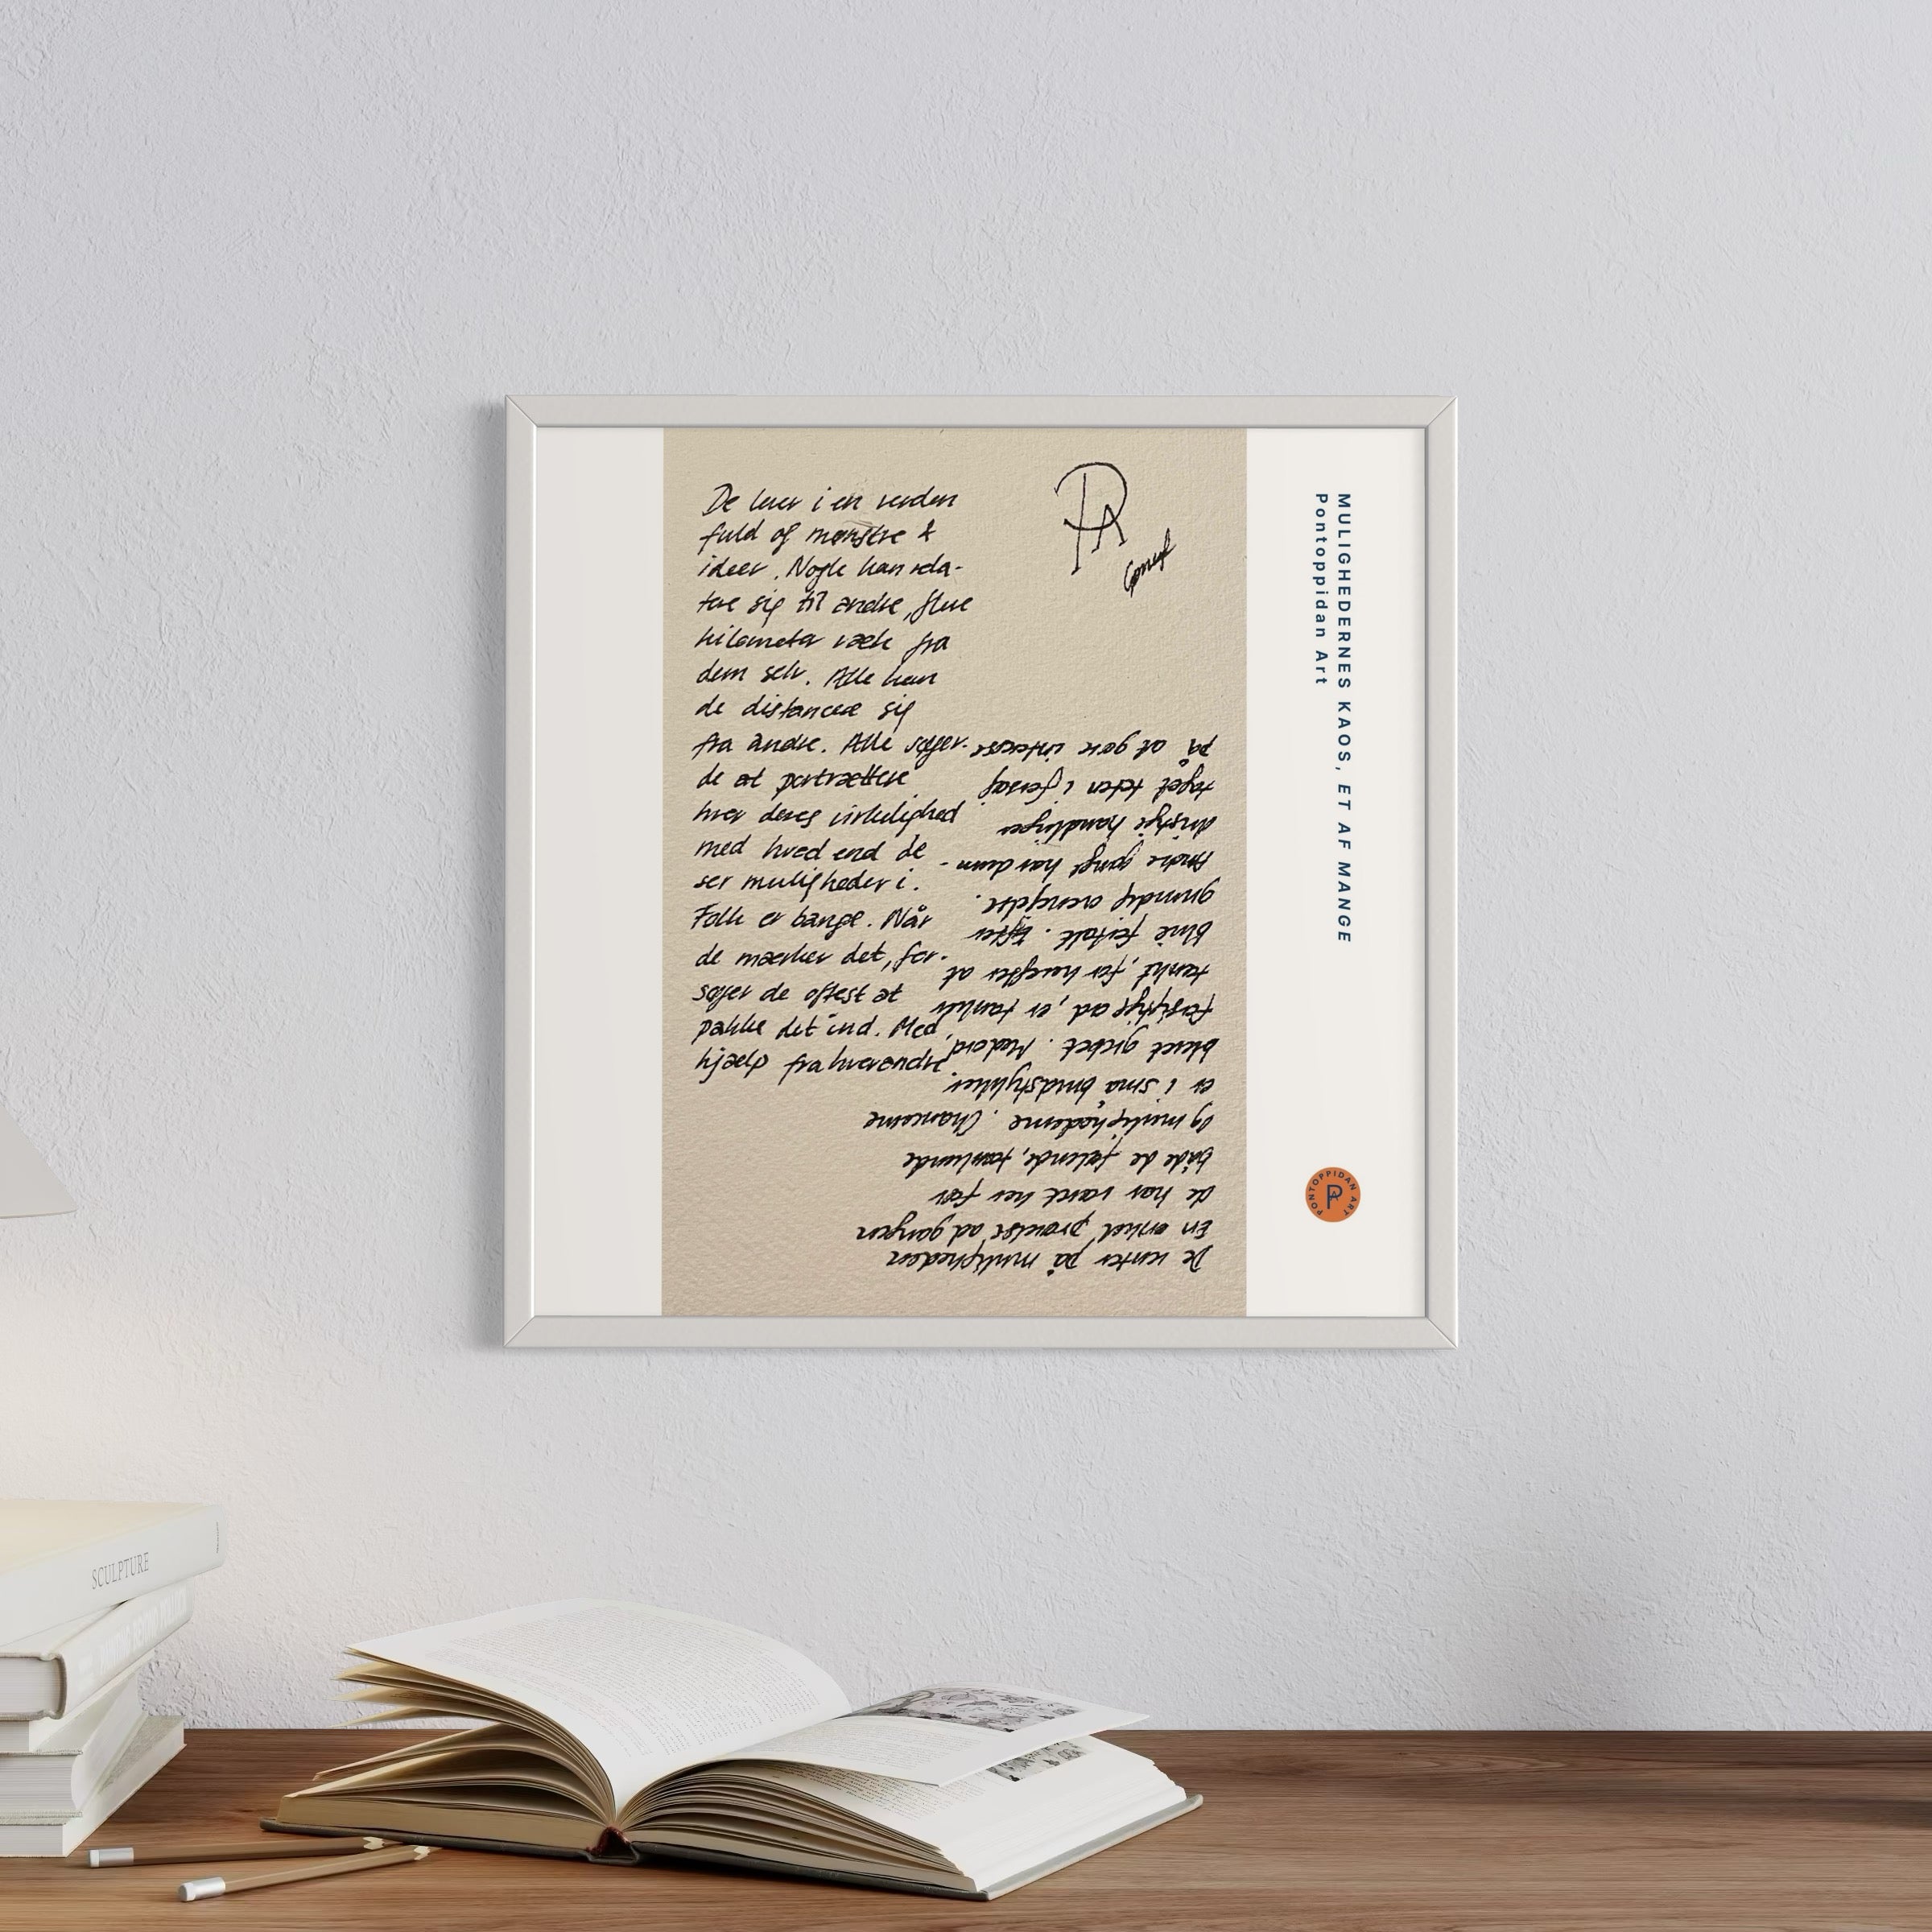 De lever i en verden
fuld af mønstre &
ideer. Nogle kan rela-
tere sig til andre, flere
kilometer væk fra
dem selv. Alle kan
de distancere sig
fra andre. Alle søger
de at portrættere
hver deres virkelighed
med hvad end de
ser muligheder i.
Folk er bange. Når
de mærker det, for-
søger de oftest at
pakke det ind. Med
hjælp fra hverandre.
De venter på muligheden
En enkel prøvelse ad gangen
de har været her før
både de følende, tænkende
og mulighederne. Chancerne
er i små brudstykker
blevet grebet. Modord,
forsigtige ad, er tanken
tænkt, for herefter at
blive fortalt. Efter
grundig overvejelse.
Andre gange har dum-
dristige handlinger
taget teten i forsøg
på at gøre interesse
PA
MULIGHEDERNES KAOS, ET AF MANGE
Pontoppidan Art
PONTOPPIDAN ART
PA
SCULPTURE